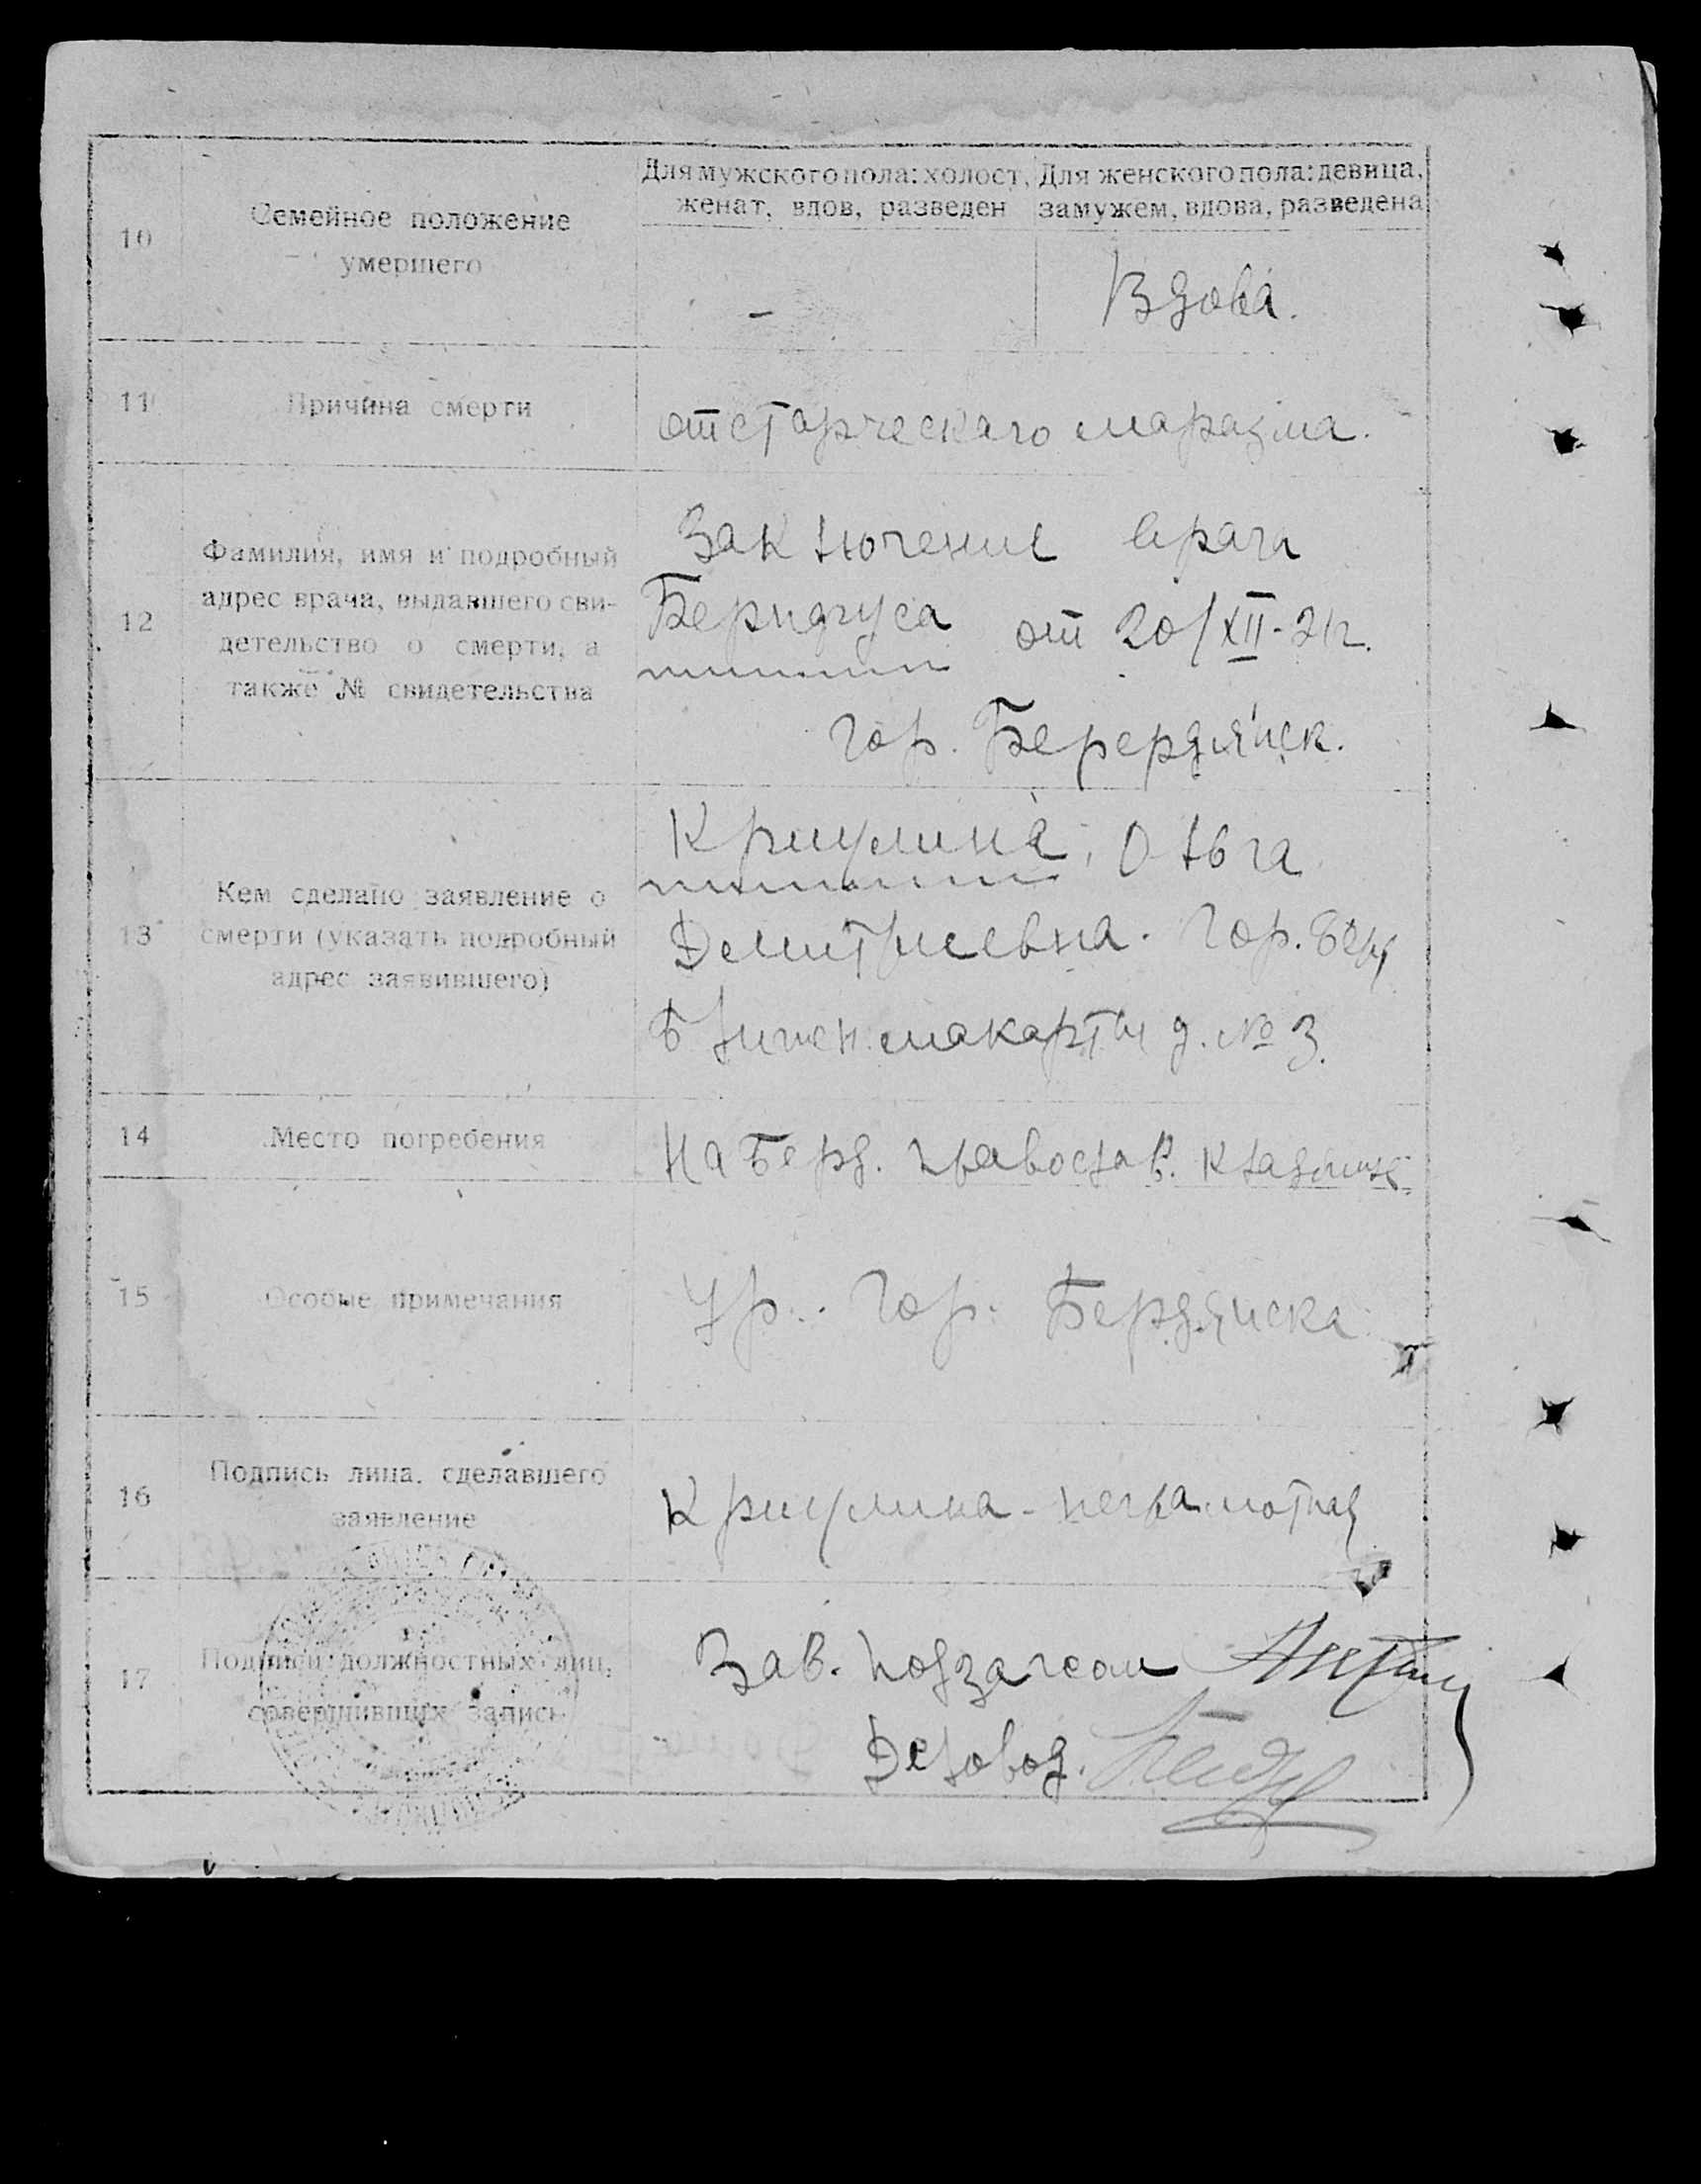 10
Семейное положение
умершего
Для мужского пола: холост,
женат, вдов, разведен
Для женского пола: девица,
замужем, вдова, разведена
-
Вдова.
11
Причина смерти
от старческаго маразма.
12
Фамилия, имя и подробный
адрес врача, выдавшего сви-
детельство о смерти, а
также № свидетельства
Заключение врача
от 20/XII-21г.
гор. Берердянск.
13
Кем сделано заявление о
смерти (указать подробный
адрес заявившего)
Ольга
Демитриевна. Гор. Бер
д. № 3.
14
Место погребения
На Берд. православ. кладбище
15
Особые примечания
Гор. Бердянска
16
Подпись лица, сделавшего
заявление
неграмотная
17
Подписи должностных лиц,
совершивших запись
Зав. подзагсом
Деловод.